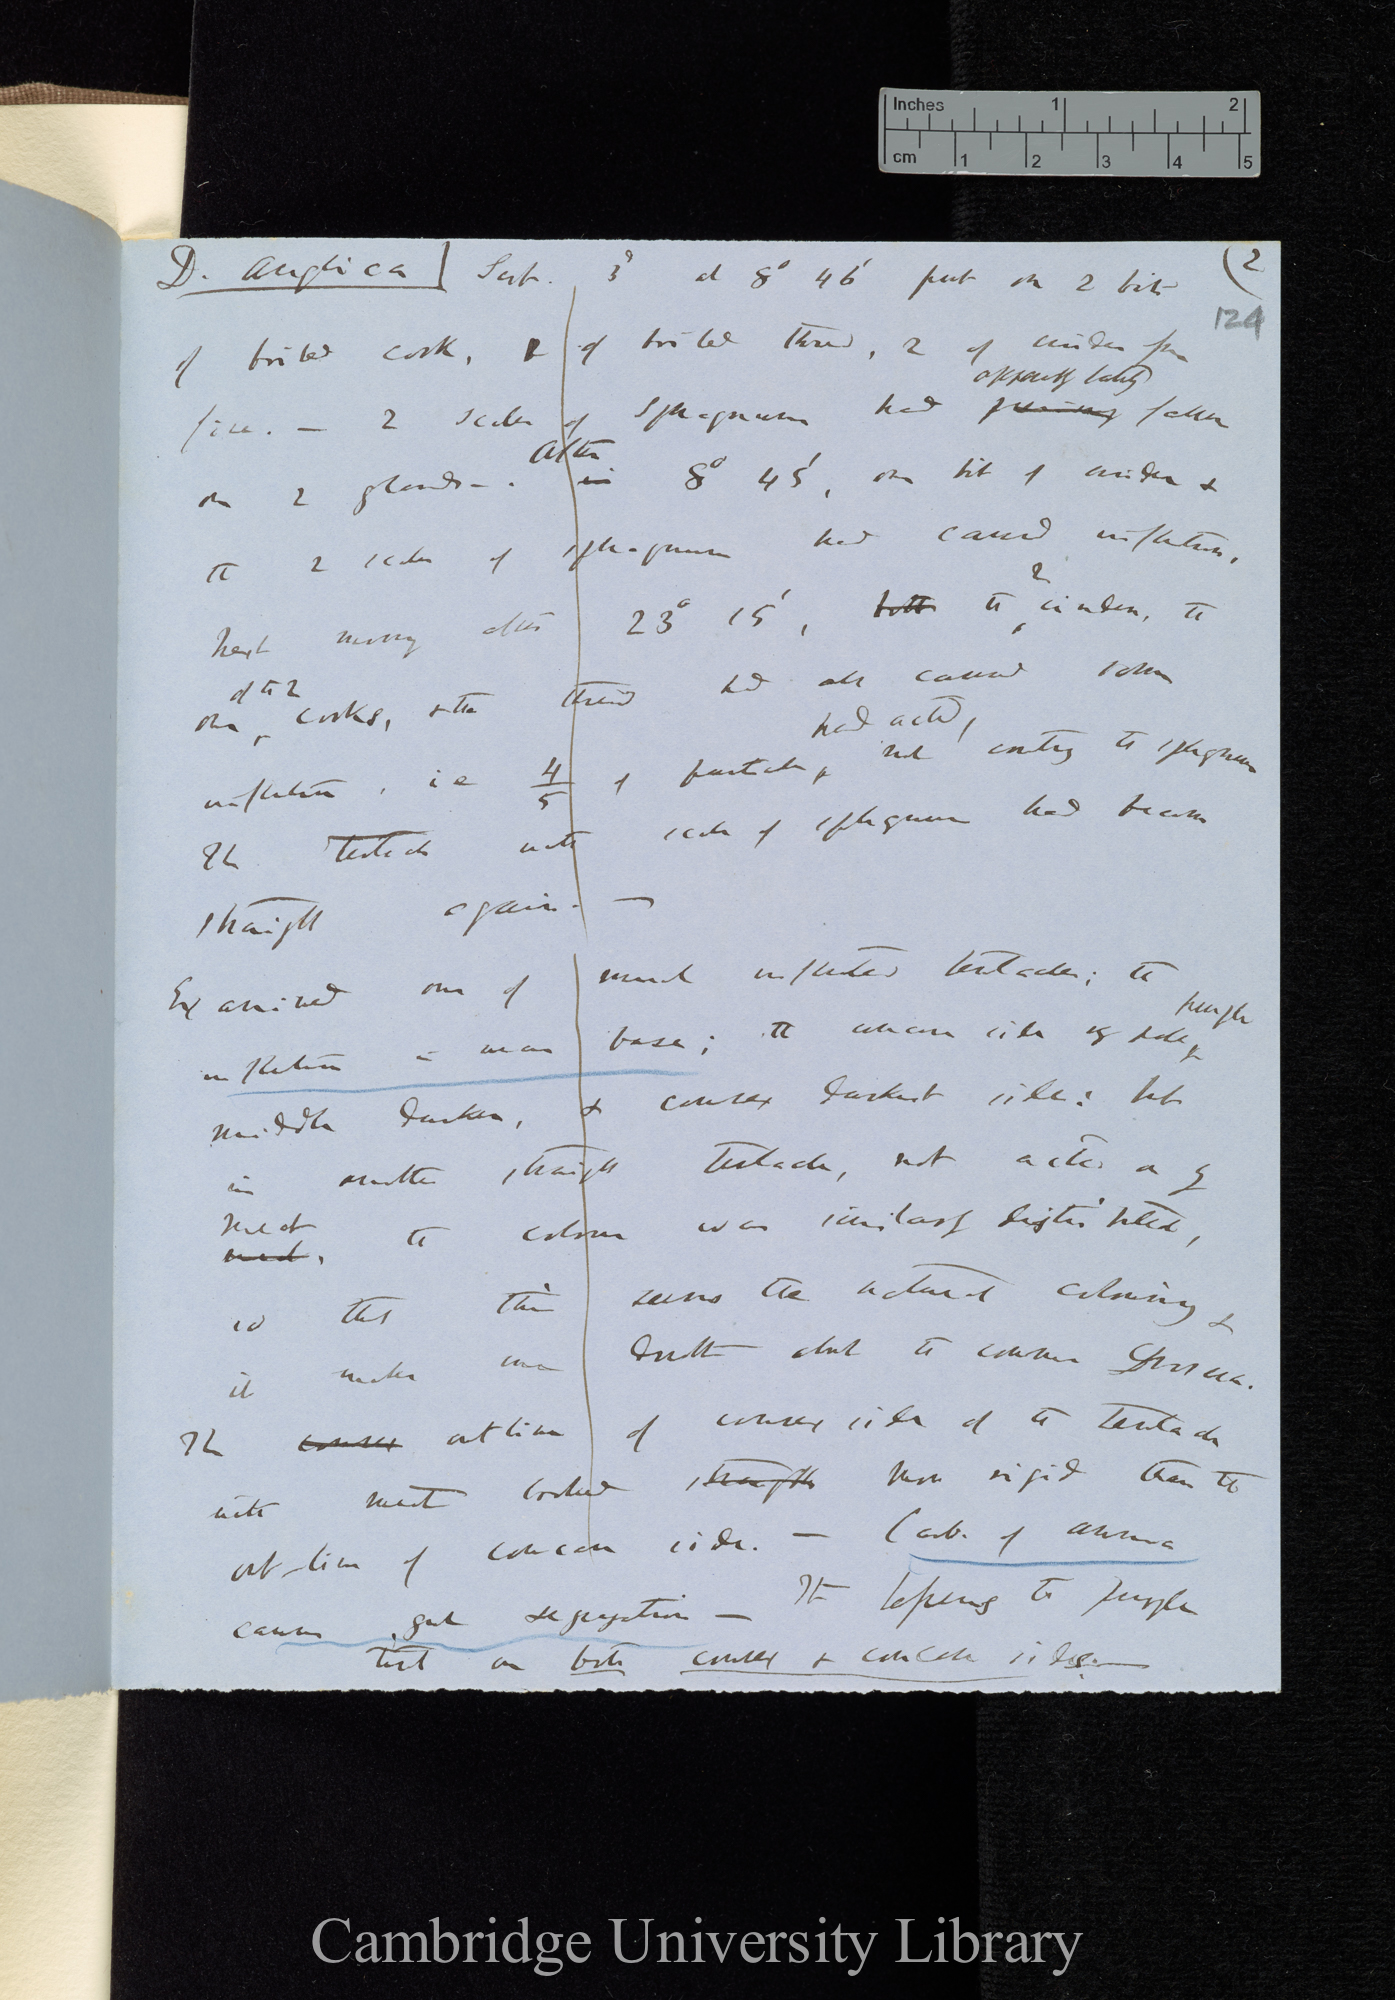 Inches 1 2
cm 1 2 3 4 5
(2
124
D. anglica] Sept. 3d at 8° 46' put on 2 bits
of boiled cork, 1 of boiled thread, 2 of cinders from
fire. — 2 scales of Sphagnum had fallen
on 2 glands —. After in 8° 45', one bit of cinder &
the 2 scales of sphagnum had caused inflection.
Next morning after 23° 15', both the 2 cinders, the
one of the 2 corks, & the thread had all caused some
inflection, i.e 4/5 of particles had acted, not counting the sphagnum
The tentacles with scales of sphagnum had become
straight again. —
Examined one of much inflected tentacles; the
inflection is near base; the concave side purple
middle darker, & convex darkest side: but
in another straight tentacle, not acted on by
meat meat, the colour was similarly distributed,
so that this seems the natural colouring &
it makes me doubt about the common Drosera.
The convex outline of convex side of the tentacle
with meat looked straight more rigid than the
out-line of concave side. — Carb. of ammonia
causes great segregation — It happens to purple
tint on both convex & concave sides —
Cambridge University Library